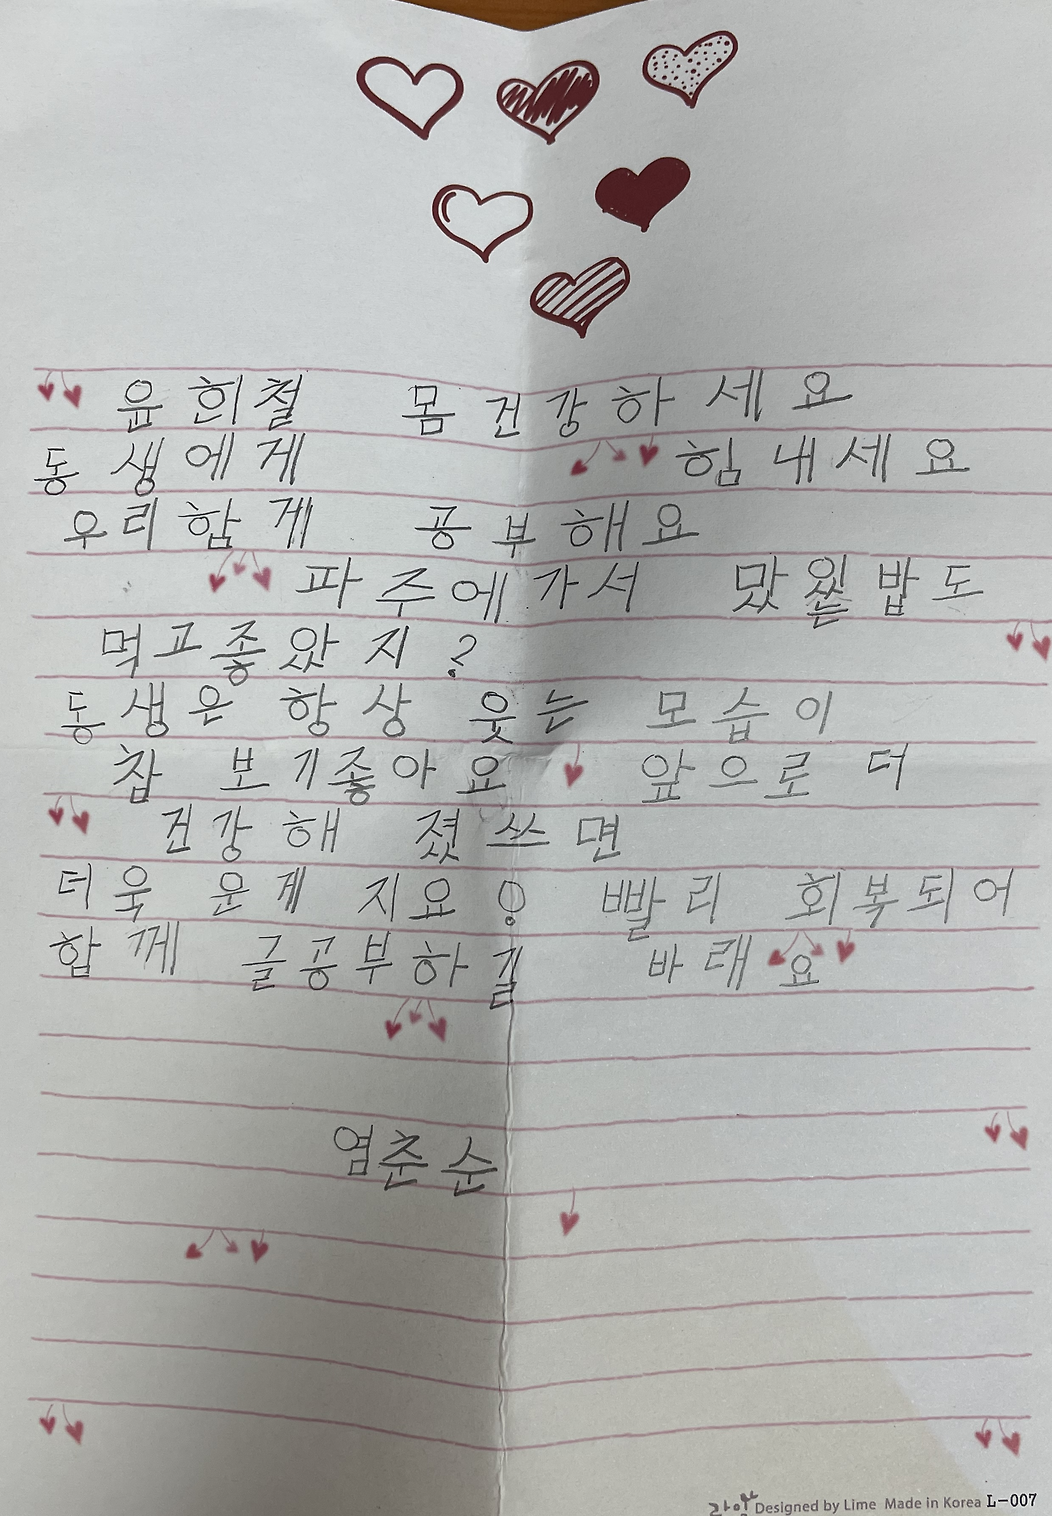 윤희철 몸 건강하세요
동생에게 힘내세요
우리함게 공부해요
파주에가서 맜있는밥도
먹고좋았지?
동생은 항상 웃는 모습이
참 보기좋아요 앞으로 더
건강해 졌쓰면
더욱 운게 지요! 빨리 회복되어
함께 글공부하길 바래요
염춘순
Designed by Lime Made in Korea L-007